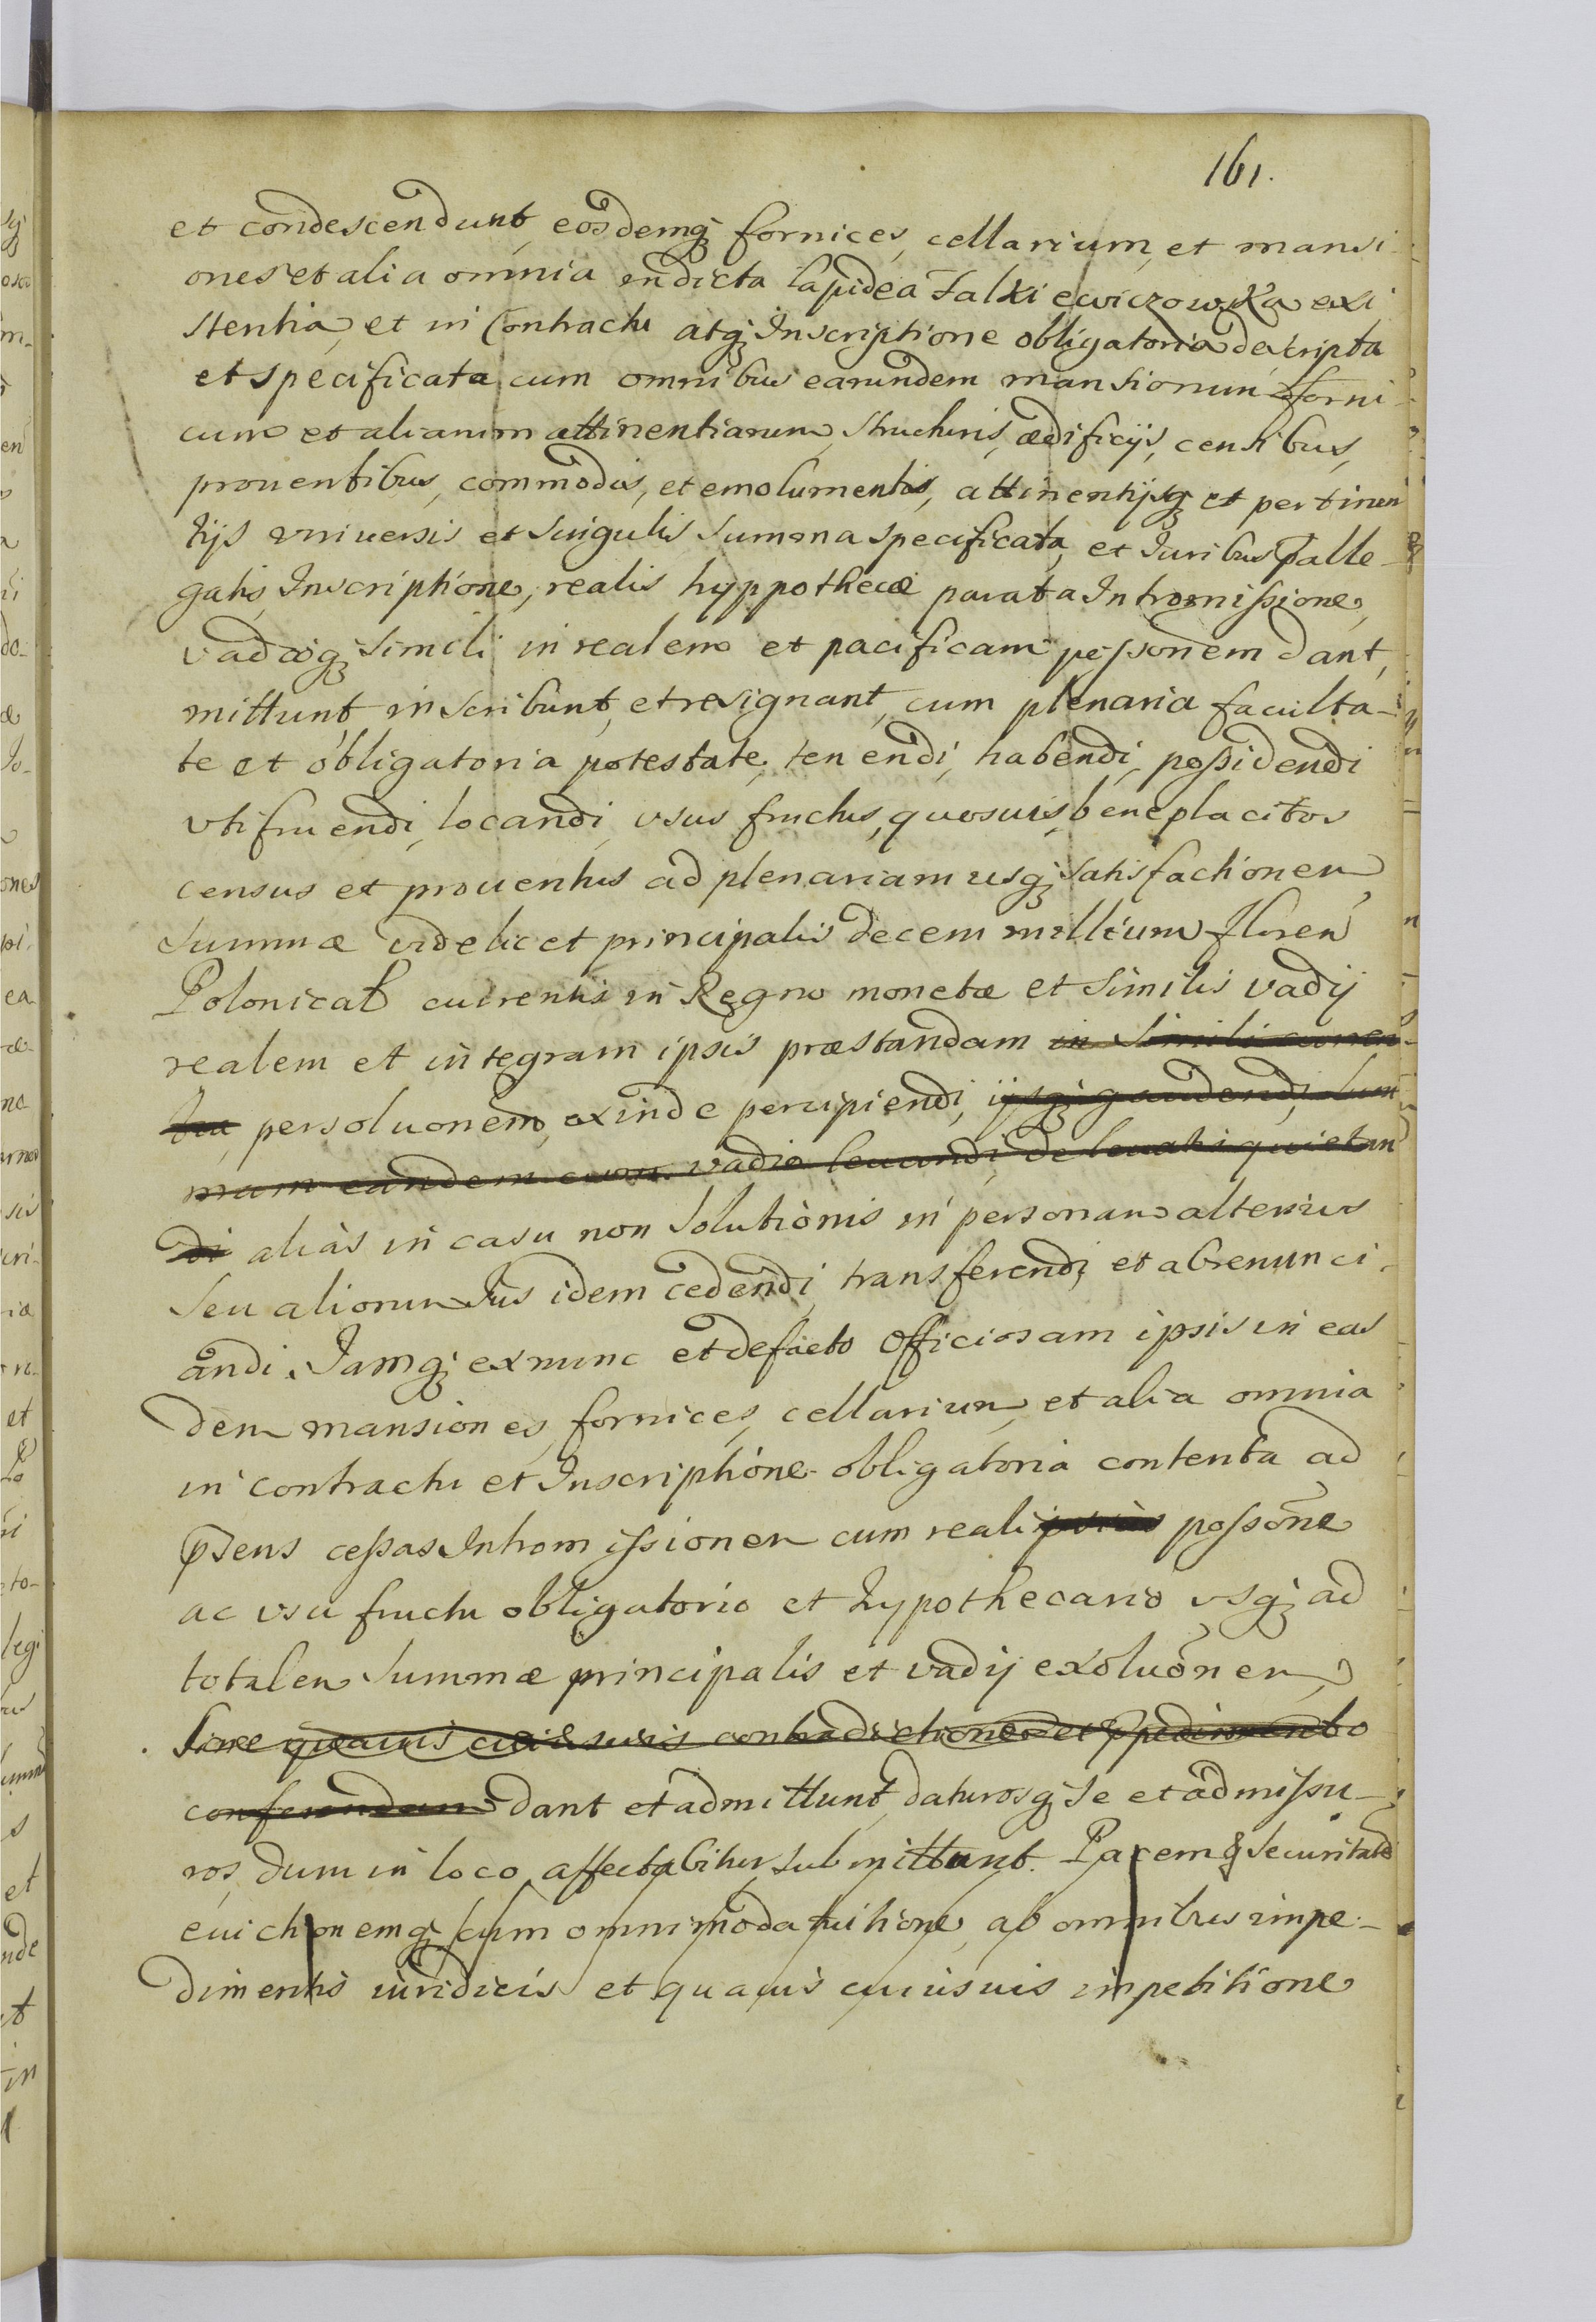 161.
et condescendunt, eosdemq fornices, cellarium, et mansi-
ones et alia omnia in dicta lapidea Falkiewiczowska exi-
stentia, et in Contractu atq Inscriptione obligatoria descripta
et specificata cum omnibus earundem mansionum forni-
cum et aliarum attinentiarum, structuris, ædificijs, censibus,
prouentibus, commodis, et emolumentis, attinentijsq et pertinen
tijs vniuersis et singulis summa specificata, et Iuribus p̄alle-
gatis, Inscriptione, realis hyppothecæ parata Intromissione,
vadioq simili in realem et pacificam possonem dant,
mittunt, inscribunt, et resignant, cum plenaria faculta-
te et obligatoria potestate, tenendi, habendi, possidendi
vtifruendi, locandi, usus fructus, quosuis, beneplacitos
census et prouentus ad plenariam usq satisfactionem
summæ videlicet principalis decem millium floren
Polonical currentis in Regno monetæ et similis vadij
realem et integram ipsis præstandam in simili curren-
tia persoluonem, exinde percipiendi, ijsq gaudendi, sum
mam eandem cum vadio leuandi, de leuatis quietan
di aliàs in casu non solutionis in personam alterius
seu aliorum Jus idem cedendi, transferendi, et abrenunci-
andi. Jamq ex nunc et de facto Officiosam ipsis in eas
dem mansiones, fornices, cellarium, et alia omnia
in contractu et Inscriptione obligatoria contenta ad
p̄sens cessas Intromissionem cum reali possōne
ac vsu fructu obligatorio et hypothecario vsq ad
totalem summæ principalis et vadij exoluōnem,
sine quauis cuiusuis contradictione et impedimento
conferendam dant et admittunt, daturosq se et admissu-
ros, dum in loco affectabitur, submittunt. Pacem & securitatē
euictionemq cum omnimoda tuitione, ab omnibus impe-
dimentis iuridicis et quauis cuiusuis impetitione